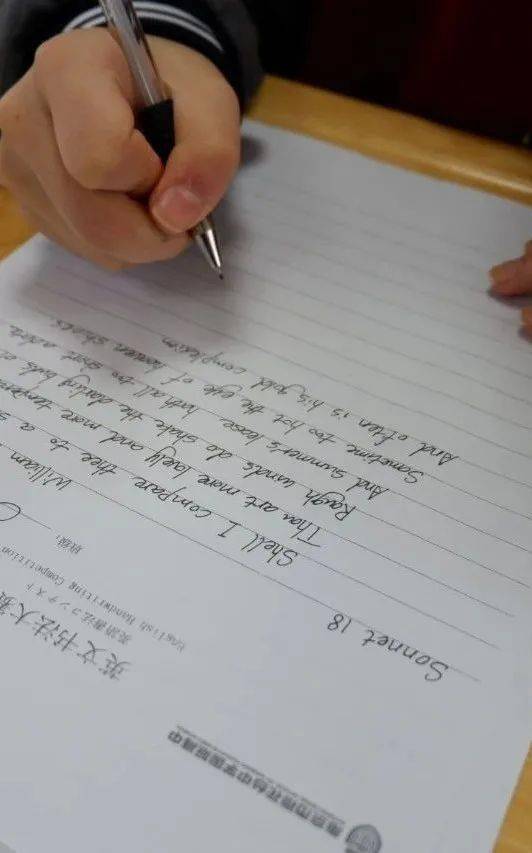 南京市雨花台中学国际高中
英文书法大赛
英語書法コンテスト
English Handwriting Competition
班级:
Sonnet 18
William
Shell I compare thee to a
Thou art more lovely and more
Rough winds do shake the darling buds
And summer's lease hath all too short
Sometime too hot the eye of heaven shines
And often is his gold complexion